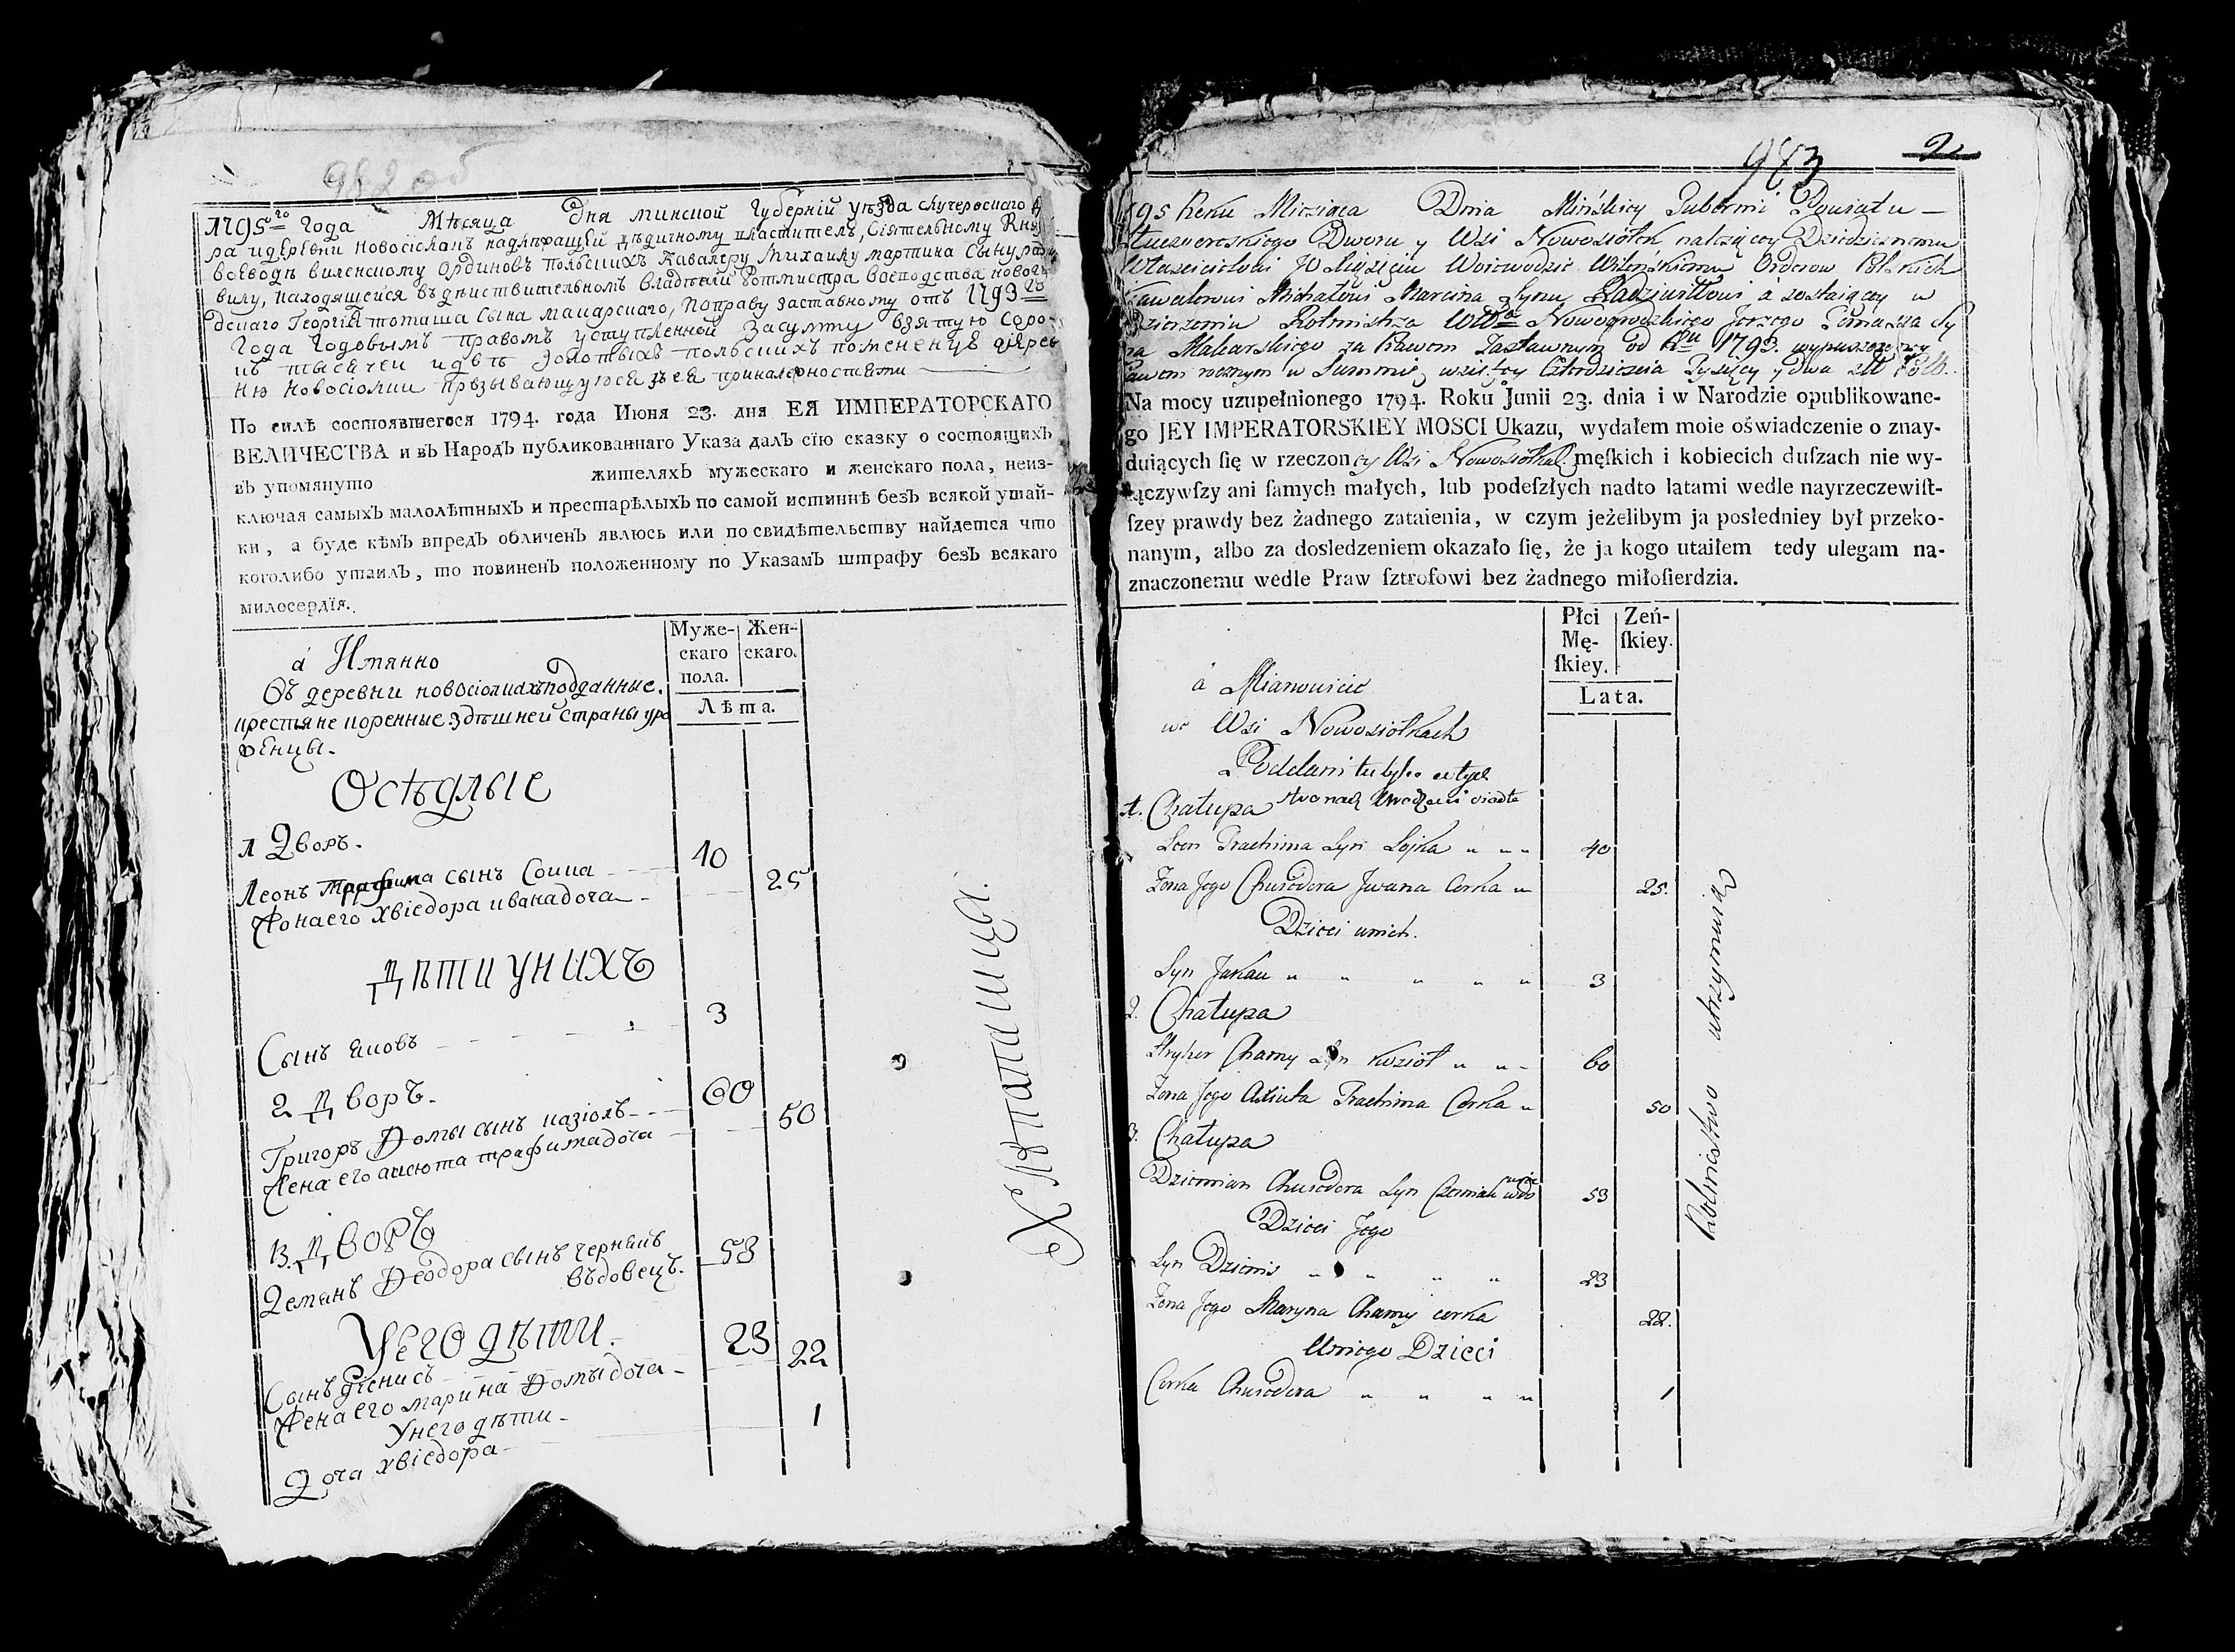 982 об
1795го Года Мѣсяца Дня минской Губерній уѣзда слуцерескаго
ра идеревни новосіолкахъ надлѣжащей дѣдичному властителѣ, Сіятельному Кня
воеводѣ виленскому Ординовъ польскихъ Кавалеру михаилу мартина Сыну
вилу, находящейся въдѣиствительномъ владѣній Ротмистра воеводства новогъ
дскаго Георгія томаша Сына макарскаго, поправу заставному отъ 1793го
Года Годовымъ правомъ уступленной Засумму взятую соро
къ тысячеи идвѣ золотыхъ польскихъ
ню новосіолки прѣзывающуюся зъея приналежностями
По силѣ состоявшегося 1794. года Июня 23. дня ЕЯ ИМПЕРАТОРСКАГО
ВЕЛИЧЕСТВА и вЪ НародЪ публикованнаго Указа далЪ сїю сказку о состоящихЪ
вЪ упомянуто жителяхЪ мужескаго и женскаго пола, неиз-
ключая самыхЪ малолѣтныхЪ и престарѣлыхЪ по самой истиннѣ безЪ всякой утай-
ки, а буде кѣмЪ впредЪ обличенЪ явлюсь или по свидѣтельству найдется что
коголибо утаилЪ, то повиненЪ положенному по УказамЪ штрафу безЪ всякаго
милосердїя.
Муже-
скаго
пола.
Жен-
скаго.
Лѣта.
а Имянно
Въ деревни новосіолкахъ подданные.
крестяне коренные здѣшней страны уро
женцы.
Осѣдлые
1 Дворъ.
Леонъ трафима сынъ Сойка 40
Жона его хвіедора ивана доча 25
Дѣти у нихъ
Сынъ яковъ 3
2 Дворъ.
Григоръ Фомы сынъ казіолъ 60
Жена его аксюта трафима доча 50
3. Дворъ
Деманъ Феодора сынъ чернякъ 53
въдовецъ.
У его дѣти.
Сынъ денисъ 23
Жена его марина Фомы доча 22
У него дѣти
Доча хвіедора 1
Хлѣпапашцы.
983 2
195 Roku Miesiąca Dnia Minśkiey Gubernii Powiatu
Słuczereskiego Dworu y Wsi Nowosiołek należącey Dziedzicznemu
Włascicielowi JO Xiążęciu Woiewodzie Wileńskiemu Orderow Polskich
Kawalerowi Michałowi Marcina Synu Radziwiłłowi á zostaiącey w
Dzierżeniu Rotmistrza Wdztwa Nowogrodzkiego Jerzego Tomasza Sy
na Makarskiego za Prawem Zastawnym od Rku 1793. wypuszczoney
awem rocznym w Summie wziętey Czterdzieścia Tysięcy y dwa złł Polb.
Na mocy uzupełnionego 1794. Roku Junii 23. dnia i w Narodzie opublikowane-
go JEY IMPERATORSKIEY MOSCI Ukazu, wydałem moie oświadczenie o znay-
duiących ſię w rzeczoney Wsi Nowosiołkach męſkich i kobiecich duſzach nie wy-
łączywſzy ani ſamych małych, lub podeſzłych nadto latami wedle nayrzeczewiſt-
ſzey prawdy bez żadnego zataienia, w czym jeżelibym ja posledniey był przeko-
nanym, albo za dosledzeniem okazało ſię, że ja kogo utaiłem tedy ulegam na-
znaczonemu wedle Praw ſztrofowi bez żadnego miłoſierdzia.
Płci
Mę-
ſkiey.
Zeń-
ſkiey.
Lata.
á Mianowicie
we Wsi Nowosiołkach
Poddani
1. Chałupa
Leon Trachima Syn Soyka 40
Zona Jego Chwiedora Jwana Corka 25.
Dzieci unich.
Syn Jakau 3
2. Chałupa
Hryhor Chamy Syn Kozioł 60
Zona Jego Axiuta Trachima Corka 50
3. Chałupa
Dziemian Chwiedora Syn Czerniak wdo 53
Dzieci Jego
Syn Dzienis 23
Zona Jego Maryna Chamy corka 22.
Uniego Dzieci
Corka Chwiedora 1
Rolnictwo utrzymuią